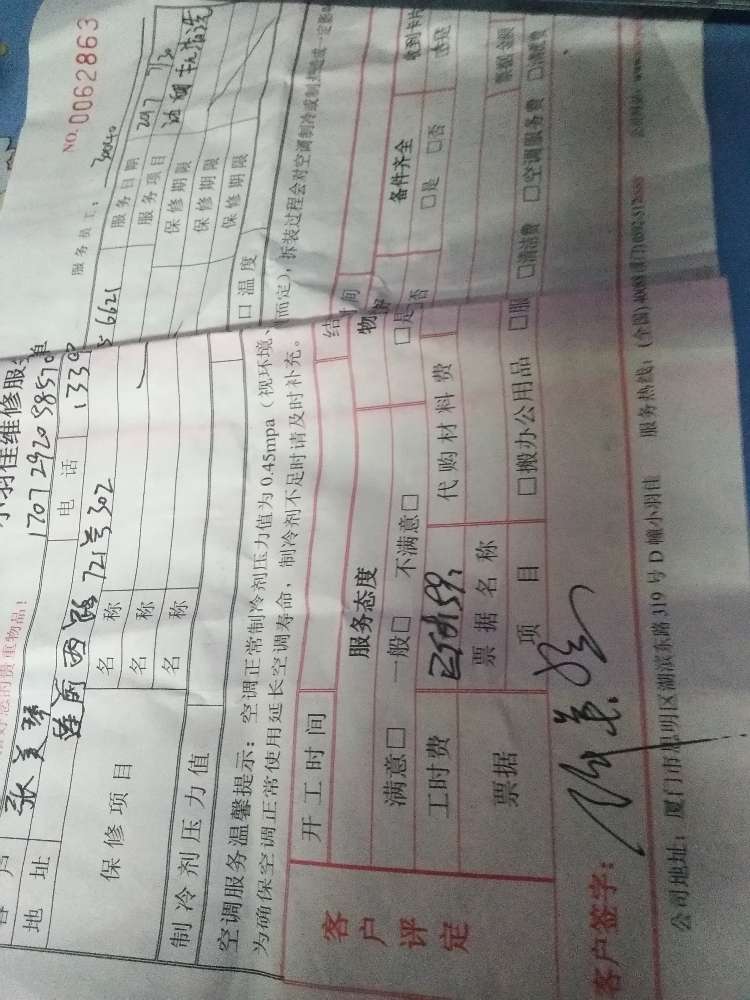 小羽佳维修服务单
NO. 0062863
您的贵重物品！
1707292058570
服务员工：
客户 张美琴
电话 13300 6621
服务日期 2017 7/30
地址 莲前西路721号302
服务项目 油烟机清洗
保修项目
名称 保修期限
名称 保修期限
名称 保修期限
制冷剂压力值
□温度
空调服务温馨提示：空调正常制冷剂压力值为0.45mpa（视环境、 而定），拆装过程会对空调制冷或制热造成一定影响
为确保空调正常使用延长空调寿命，制冷剂不足时请及时补充。
客户评定
开工时间
结 时间
服务态度
物
备件齐全
收到卡片
满意□ 一般□ 不满意□
□是 □否
□是 □否
工时费
代购材料费
票据
票据名称
票据金额
项目
□搬办公用品 □服 □清洁费 □空调服务费 □清洗费
客户签字：
公司地址：厦门市思明区湖滨东路319号D幢小羽佳 服务热线：(全国)